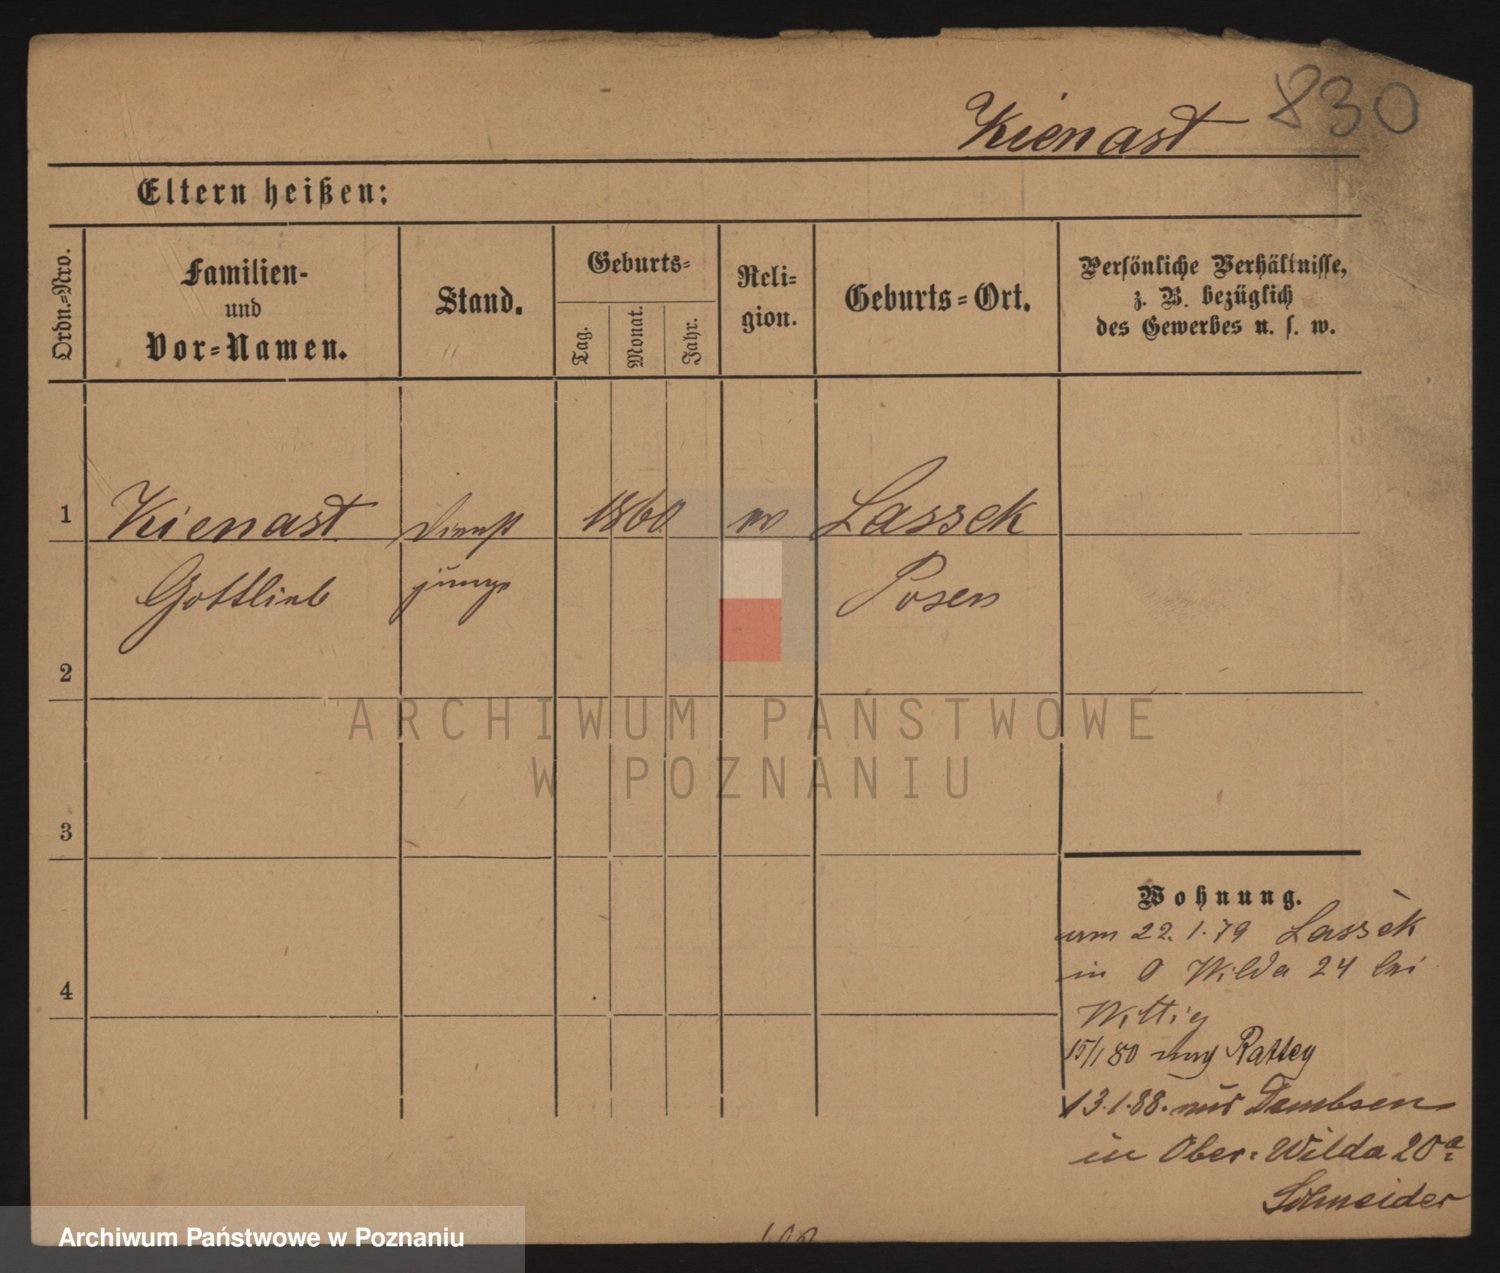 830
Kienast
Eltern heißen:
Ordn.-Nro.
Familien-
und
Vor-Namen.
Stand.
Geburts-
Tag.
Monat.
Jahr.
Reli-
gion.
Geburts-Ort.
Persönliche Verhältnisse,
z. B. bezüglich
des Gewerbes u. s. w.
1 Kienast Dienst 1860 ev Lassek
Gottlieb junge Posen
2
3
4
Wohnung.
22.1.79 Lassek
in O Wilda 24 bei
Wittig
15/1 80 nach Rattey
13.1.88. aus Dembsen
in Ober-Wilda 20a
Schneider
ARCHIWUM PAŃSTWOWE
W POZNANIU
Archiwum Państwowe w Poznaniu